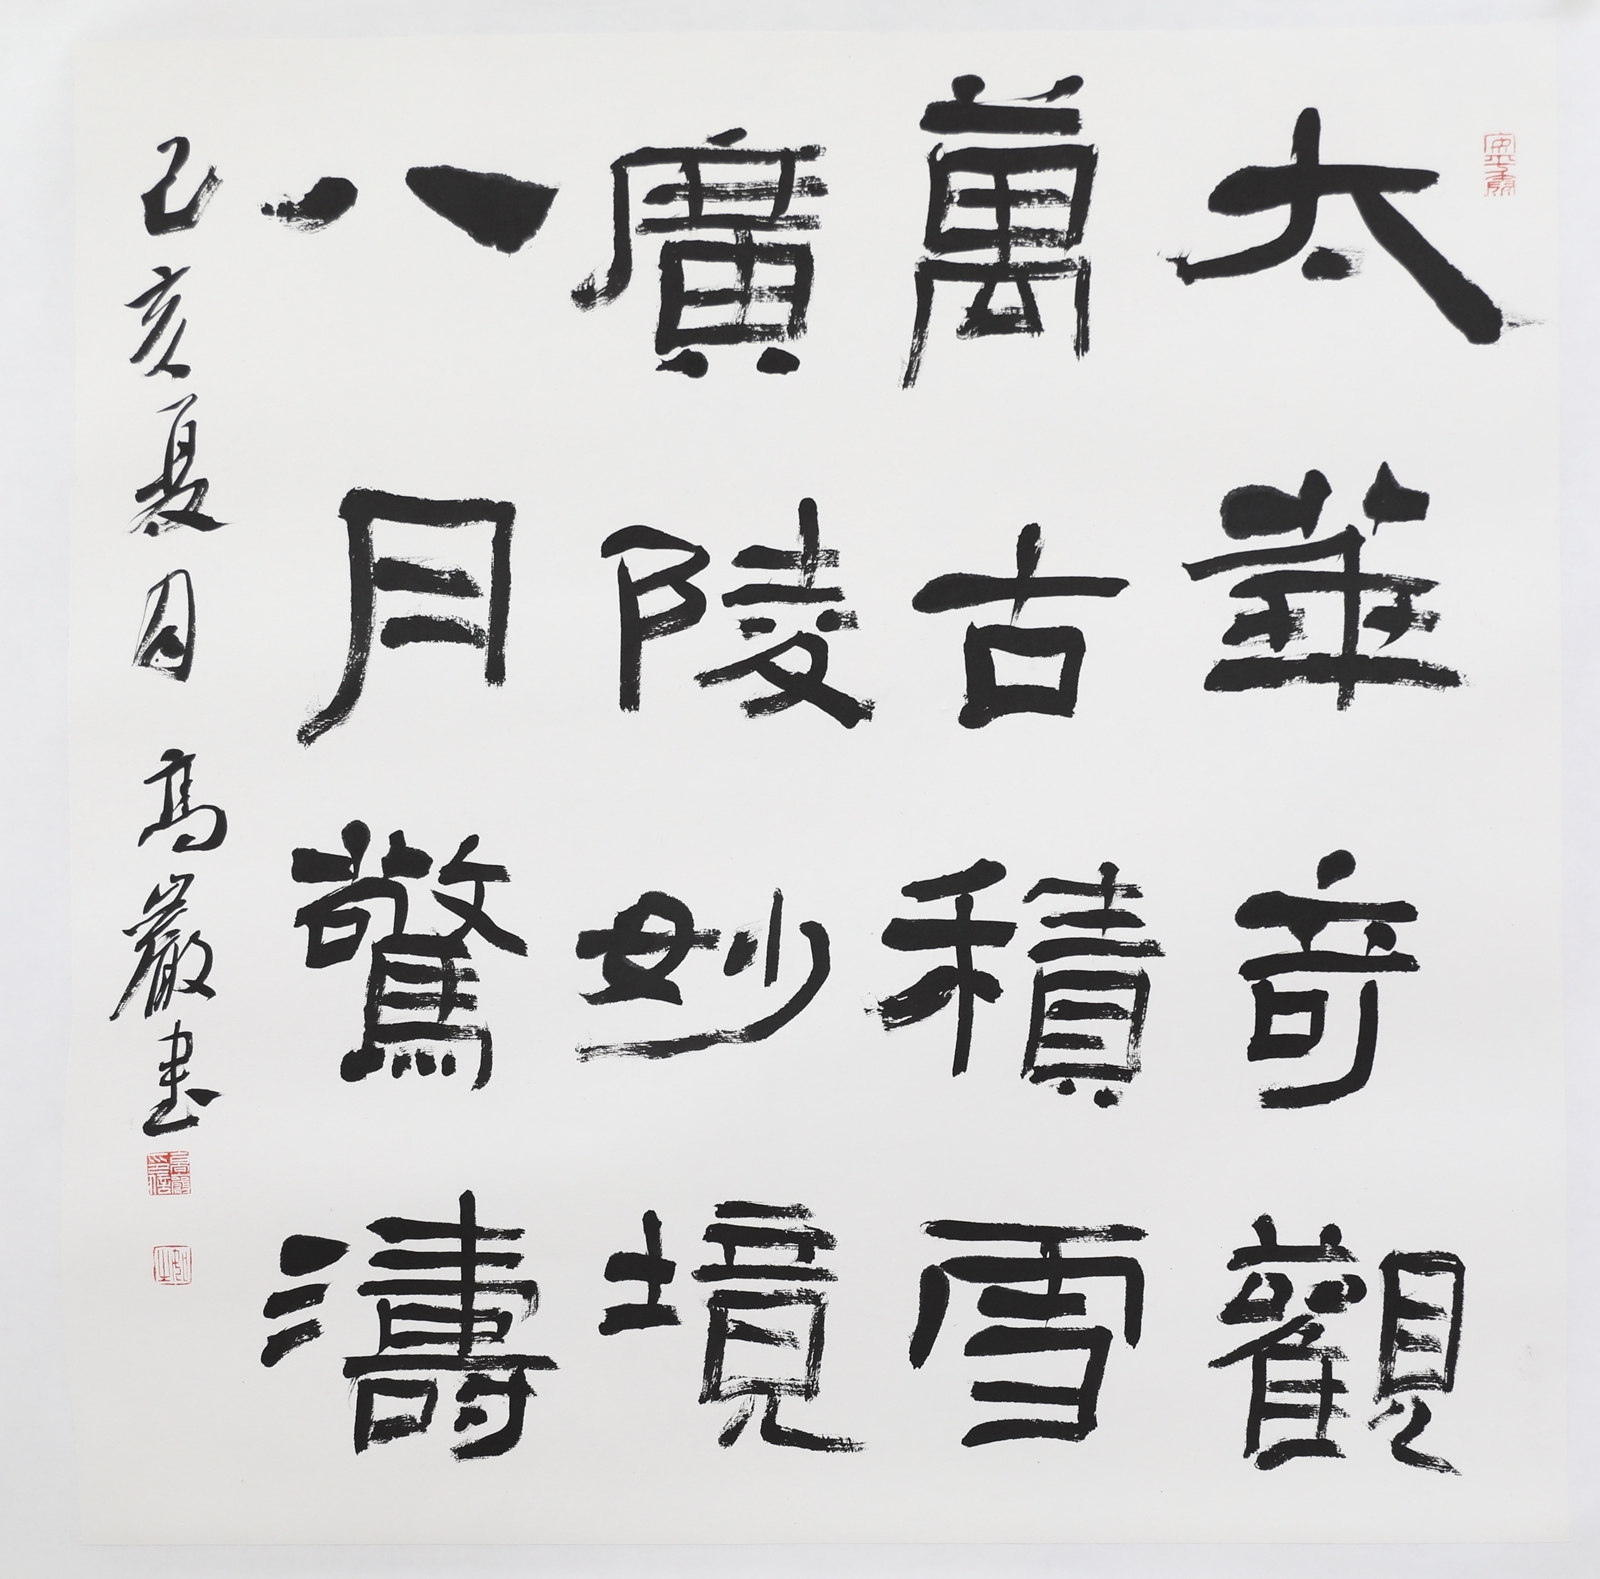 太華奇觀
萬古積雪
廣陵妙境
八月驚濤
己亥夏月 高嚴書